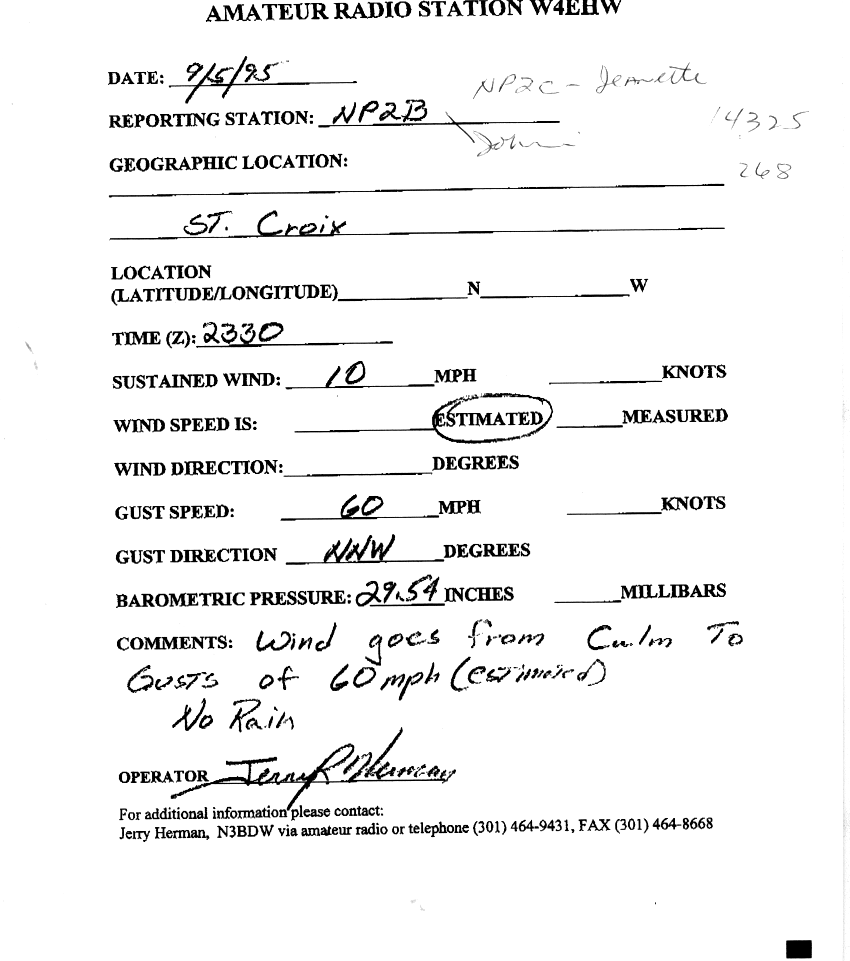 AMATEUR RADIO STATION W4EHW
DATE: 9/5/95
NP2C - Jeanette
REPORTING STATION: NP2B
John
14325
GEOGRAPHIC LOCATION:
268
ST. Croix
LOCATION
(LATITUDE/LONGITUDE) N W
TIME (Z): 2330
SUSTAINED WIND: 10 MPH KNOTS
WIND SPEED IS: ESTIMATED MEASURED
WIND DIRECTION: DEGREES
GUST SPEED: 60 MPH KNOTS
GUST DIRECTION NNW DEGREES
BAROMETRIC PRESSURE: 29.54 INCHES MILLIBARS
COMMENTS: Wind goes from Calm To
Gusts of 60 mph (estimated)
No Rain
OPERATOR Jerry Herman
For additional information please contact:
Jerry Herman, N3BDW via amateur radio or telephone (301) 464-9431, FAX (301) 464-8668